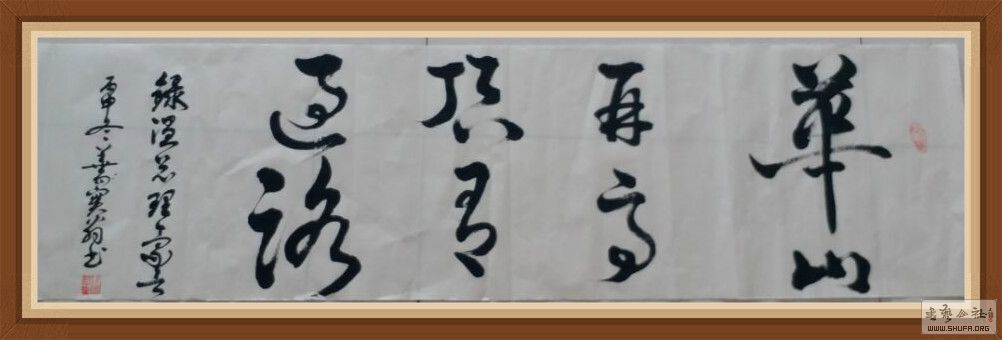 華山
再高
頂有
過路
錄溫总理寄言
丙申冬
書艺公社
WWW.SHUFA.ORG